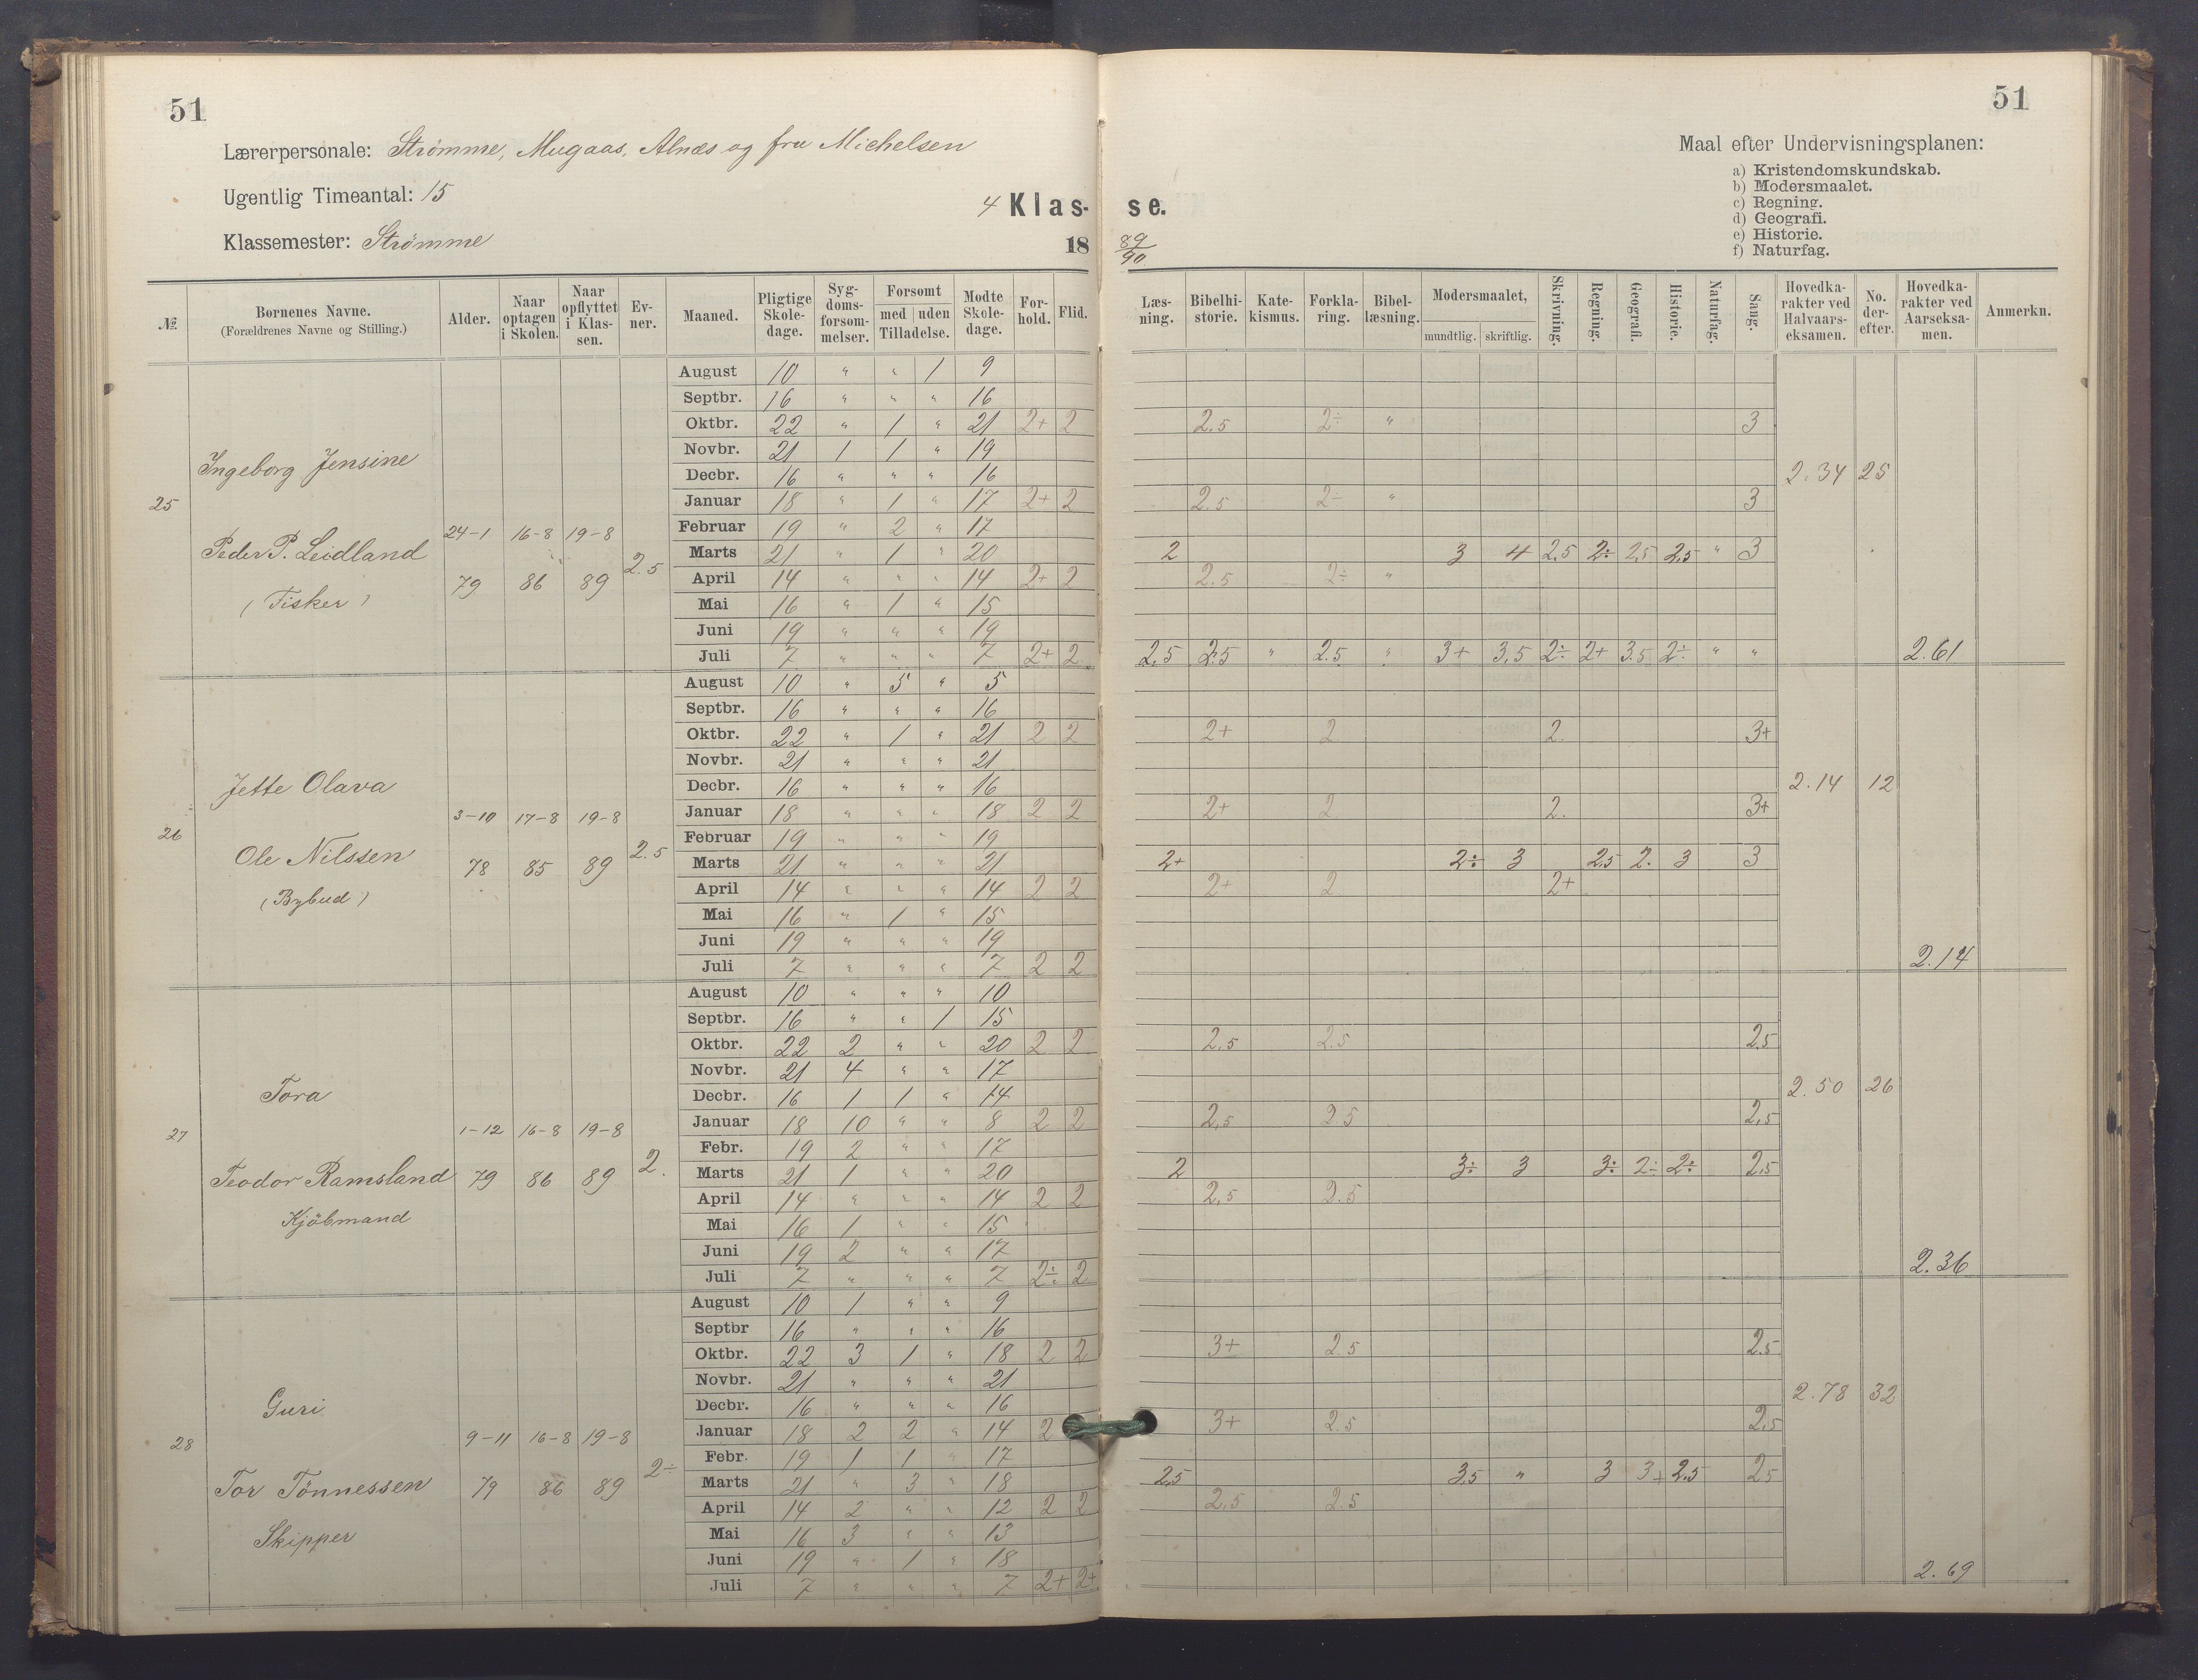 51
51
Lærerpersonale: Strömme, Mugaas, Alnæs og fru Michelsen
Ugentlig Timeantal: 15
Klassemester: Strømme
4 Klas- se.
18 89/90
Maal efter Undervisningsplanen:
a) Kristendomskundskab.
b) Modersmaalet.
c) Regning.
d) Geografi.
e) Historie.
f) Naturfag.
№ Børnenes Navne. (Forældrenes Navne og Stilling.) Alder. Naar optagen i Skolen. Naar opflyttet i Klassen. Evner. Maaned. Pligtige Skoledage. Sygdomsforsømmelser. Forsømt med uden Tilladelse. Mødte Skoledage. Forhold. Flid. Læsning. Bibelhistorie. Katekismus. Forklaring. Bibellæsning. Modersmaalet, mundtlig. skriftlig. Skrivning. Regning. Geografi. Historie. Naturfag. Sang. Hovedkarakter ved Halvaarseksamen. No. derefter. Hovedkarakter ved Aarseksamen. Anmerkn.
25 Ingeborg Jensine
Peder P. Leidland
(Fisker)
24-1 79 16-8 86 19-8 89 2.5
August 10 " " 1 9
Septbr. 16 " " " 16
Oktbr. 22 " 1 " 21 2+ 2 2.5 2÷ " 3
Novbr. 21 1 1 " 19
Decbr. 16 " " " 16 2.34 25
Januar 18 " 1 " 17 2+ 2 2.5 2÷ " 3
Februar 19 " 2 " 17
Marts 21 " 1 " 20 2 3 4 2.5 2÷ 2.5 2.5 " 3
April 14 " " " 14 2+ 2 2.5 2÷ "
Mai 16 " 1 " 15
Juni 19 " " " 19
Juli 7 " " " 7 2+ 2 2.5 2.5 " 2.5 " 3+ 3.5 2÷ 2+ 3.5 2÷ " " 2.61
26 Jette Olava
Ole Nilssen
(Bybud)
3-10 78 17-8 85 19-8 89 2.5
August 10 " 5 " 5
Septbr. 16 " " " 16
Oktbr. 22 " 1 " 21 2 2 2+ 2 2. 3+
Novbr. 21 " " " 21
Decbr. 16 " " " 16 2.14 12
Januar 18 " " " 18 2 2 2+ 2 2. 3+
Februar 19 " " " 19
Marts 21 " " " 21 2+ 2÷ 3 2.5 2. 3 3
April 14 " " " 14 2 2 2+ 2 2+
Mai 16 " 1 " 15
Juni 19 " " " 19
Juli 7 " " " 7 2 2 2.14
27 Tora
Teodor Ramsland
Kjöbmand
1-12 79 16-8 86 19-8 89 2.
August 10 " " " 10
Septbr. 16 " " 1 15
Oktbr. 22 2 " " 20 2 2 2.5 2.5 2.5
Novbr. 21 4 " " 17
Decbr. 16 1 1 " 14 2.50 26
Januar 18 10 " " 8 2 2 2.5 2.5 2.5
Febr. 19 2 " " 17
Marts 21 1 " " 20 2 3÷ 3 3÷ 2÷ 2÷ 2.5
April 14 " " " 14 2 2 2.5 2.5
Mai 16 1 " " 15
Juni 19 2 " " 17
Juli 7 " " " 7 2÷ 2 2.36
28 Guri
Tor Tönnessen
Skipper
9-11 79 16-8 86 19-8 89 2÷
August 10 1 " " 9
Septbr 16 " " " 16
Oktbr. 22 3 1 " 18 2 2 3+ 2.5 2.5
Novbr. 21 " " " 21
Decbr. 16 " " " 16 2.78 32
Januar 18 2 2 " 14 2 3+ 2.5 2.5
Febr. 19 1 1 " 17
Marts 21 " 3 " 18 2.5 3.5 " 3 3+ 2.5 2.5
April 14 2 " " 12 2 2 2.5 2.5
Mai 16 3 " " 13
Juni 19 " 1 " 18
Juli 7 " " " 7 2+ 2+ 2.69